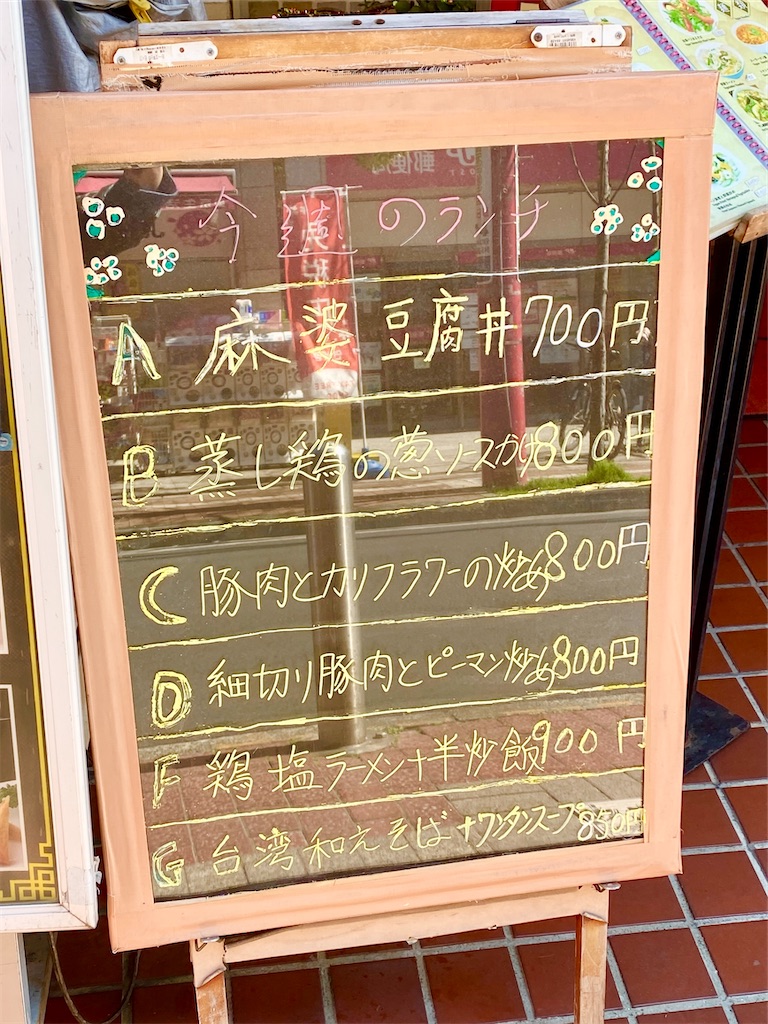 今週のランチ
A 麻婆豆腐丼700円
B 蒸し鶏の葱ソースかけ800円
C 豚肉とカリフラワーの炒め800円
D 細切り豚肉とピーマン炒め800円
F 鶏塩ラーメン+半炒飯900円
G 台湾和えそば+ワンタンスープ850円